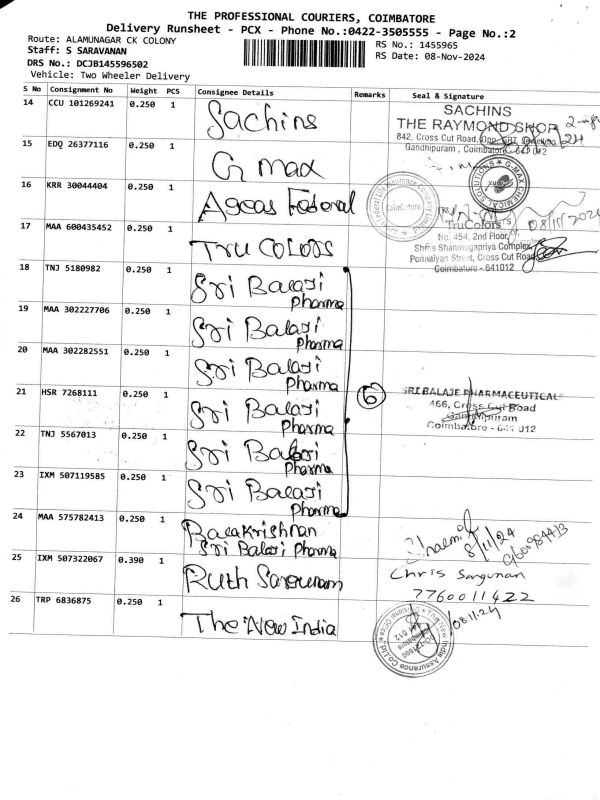 THE PROFESSIONAL COURIERS, COIMBATORE
Delivery Runsheet - PCX - Phone No.:0422-3505555 - Page No.:2
Route: ALAMUNAGAR CK COLONY
RS No.: 1455965
Staff: S SARAVANAN
RS Date: 08-Nov-2024
DRS No.: DCJB145596502
Vehicle: Two Wheeler Delivery
S No Consignment No Weight PCS Consignee Details Remarks Seal & Signature
14 CCU 101269241 0.250 1 Sachins
SACHINS
THE RAYMOND SHOP
842, Cross Cut Road, Opp. GRT Jewellers,
Gandhipuram, Coimbatore - 641 012
15 EDQ 26377116 0.250 1 G max
G-MAX CHEMICAL SOLUTIONS
16 KRR 30044404 0.250 1 Ageas Federal
Coimbatore
17 MAA 600435452 0.250 1 TRU COLORS
TruColors
08/11/2024
No. 454, 2nd Floor,
Shree Shanmugapriya Complex,
Ponnaiyan Street, Cross Cut Road
Coimbatore - 641012
18 TNJ 5180982 0.250 1 Sri Balaji
Pharma
19 MAA 302227706 0.250 1 Sri Balaji
Pharma
20 MAA 302282551 0.250 1 Sri Balaji
Pharma
21 HSR 7268111 0.250 1 Sri Balaji
Pharma
6
SRI BALAJE PHARMACEUTICALS
466, Cross Cut Road
Gandhipuram
Coimbatore - 641 012
22 TNJ 5567013 0.250 1 Sri Balaji
Pharma
23 IXM 507119585 0.250 1 Sri Balaji
Pharma
24 MAA 575782413 0.250 1 Balakrishnan
Sri Balaji Pharma
8/11/24
25 IXM 507322067 0.390 1 Ruth Sargunam
Chris Sargunan
7760011422
26 TRP 6836875 0.250 1 The New India
The New India Assurance Co.Ltd
08.11.24